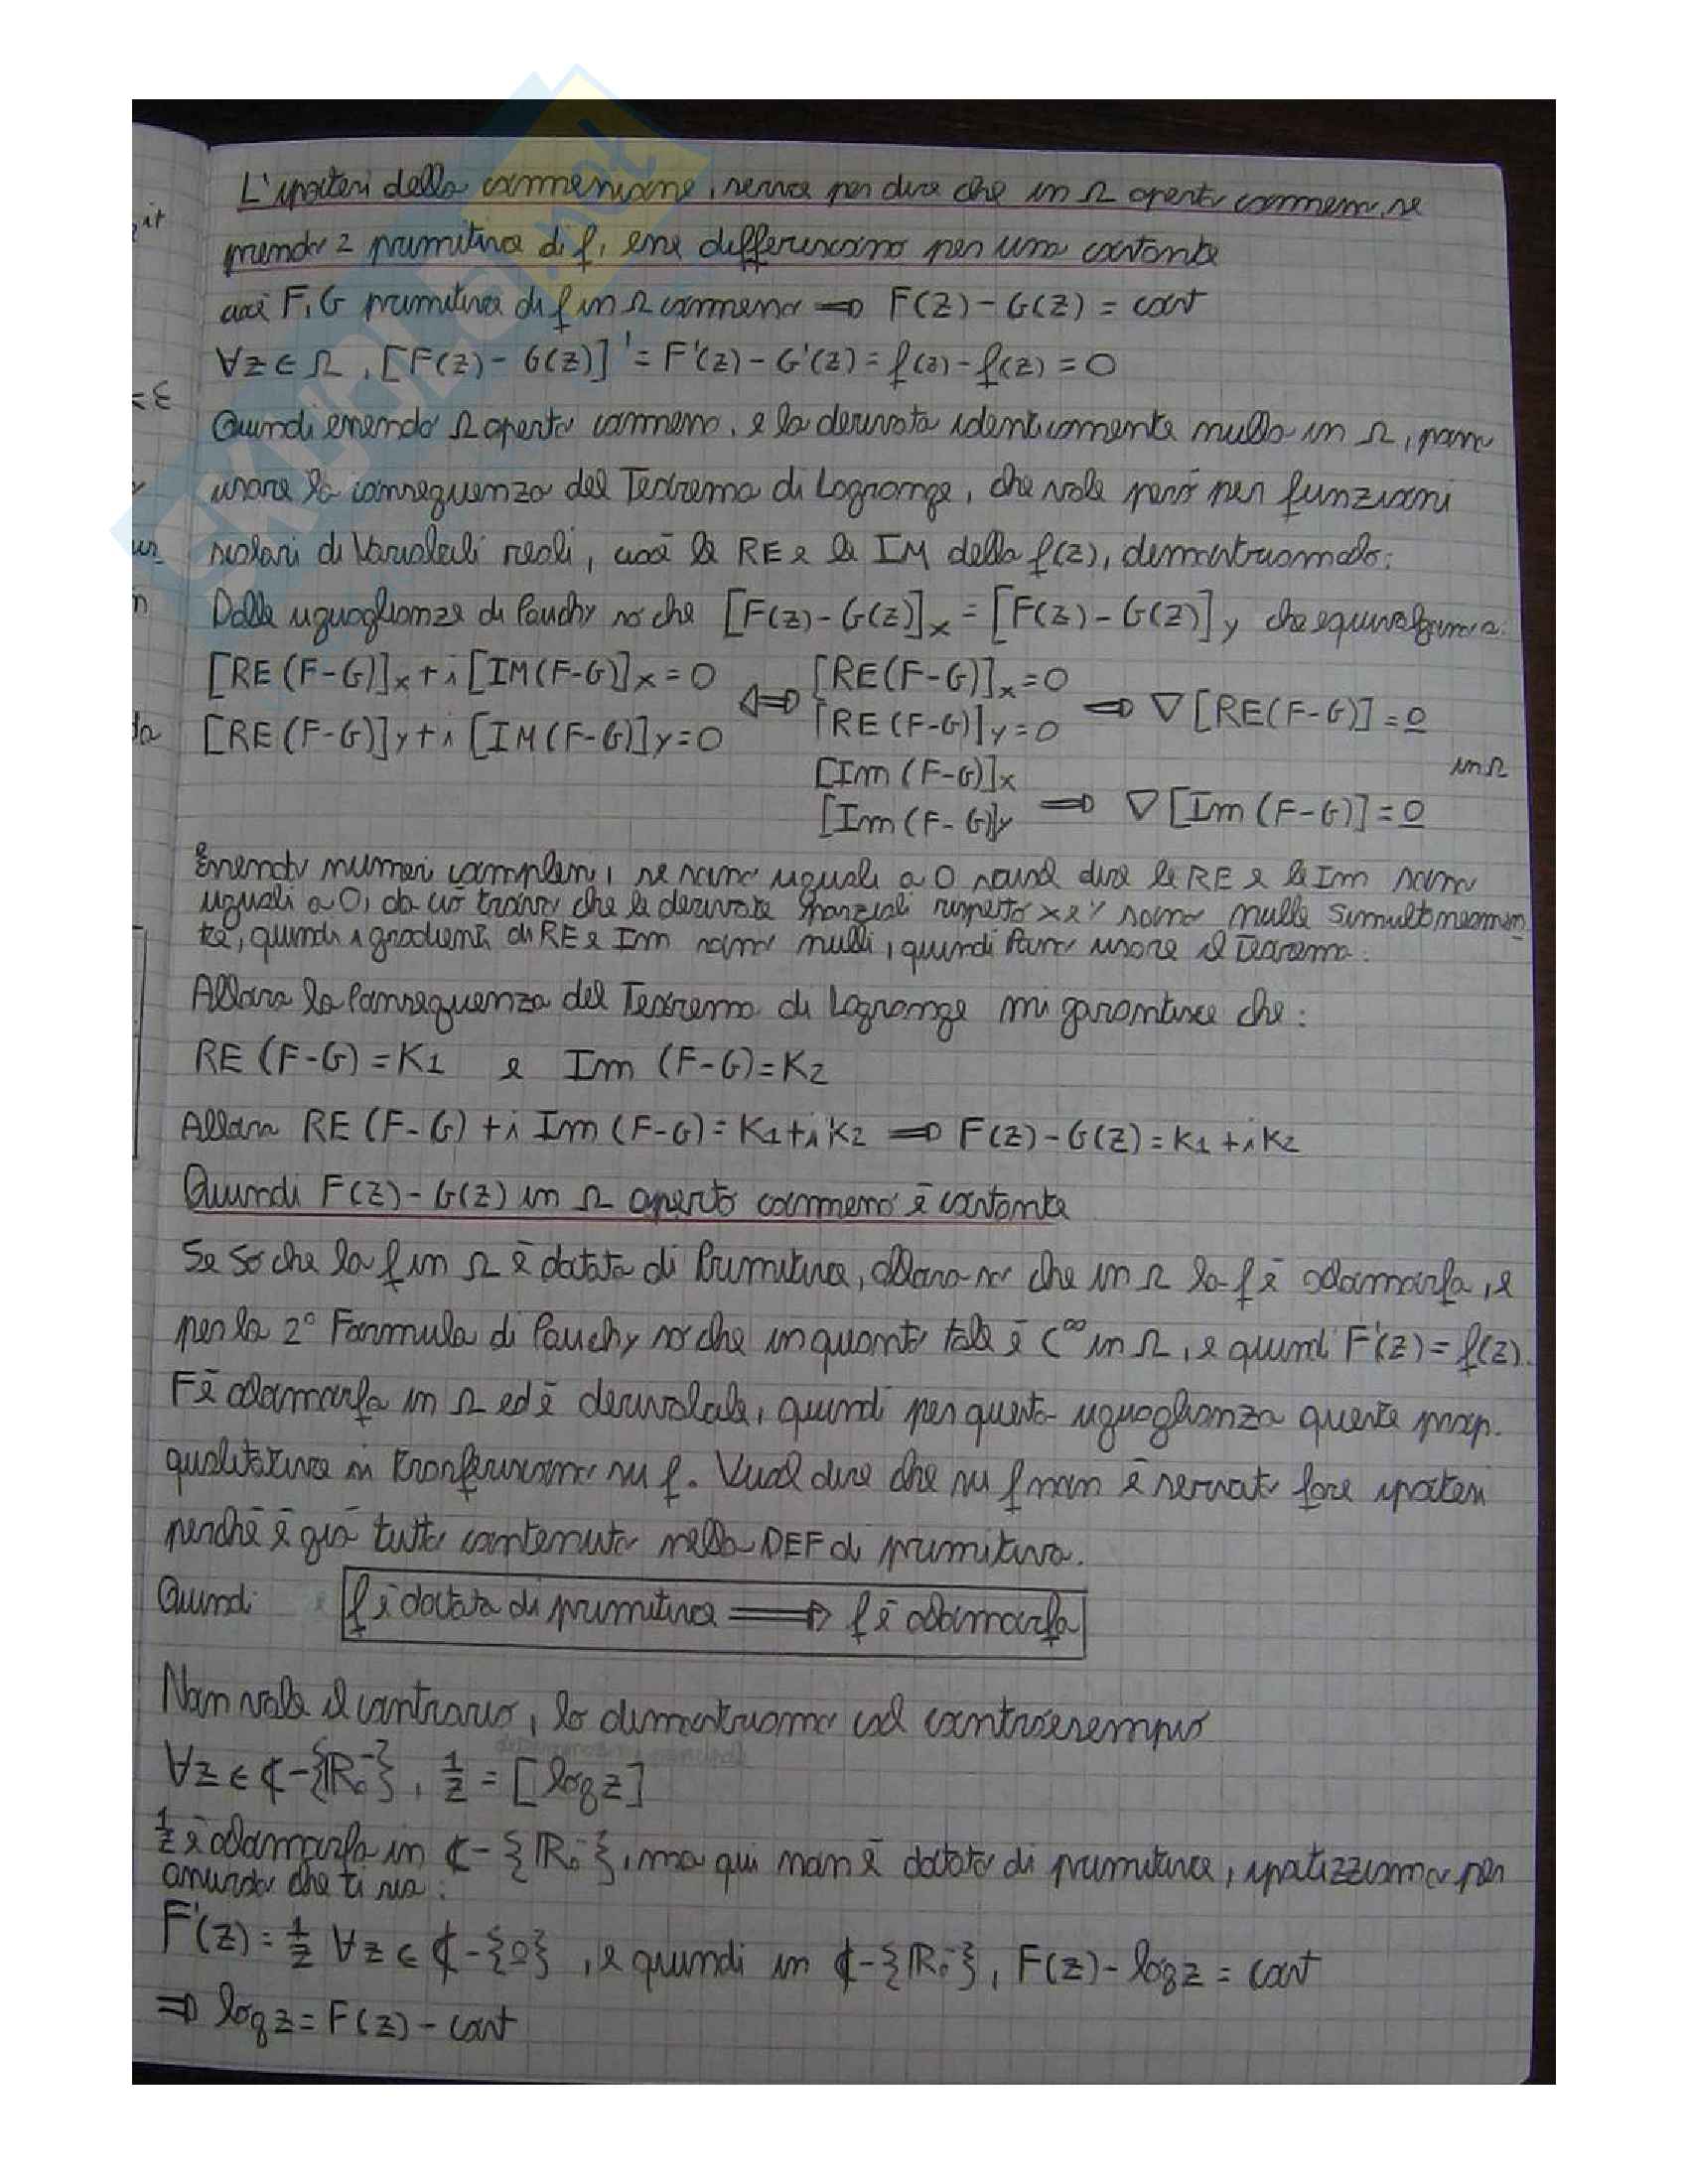 L'ipotesi della connessione, serve per dire che in Ω aperto connesso, se
prendo 2 primitive di f, esse differiscono per una costante
cioè F, G primitive di f in Ω connesso ⇒ F(z) - G(z) = cost
∀z ∈ Ω, [F(z) - G(z)]' = F'(z) - G'(z) = f(z) - f(z) = 0
Quindi essendo Ω aperto connesso, e la derivata identicamente nulla in Ω, posso
usare la conseguenza del Teorema di Lagrange, che vale però per funzioni
scalari di Variabili reali, cioè la RE e la IM della f(z), dimostriamolo:
Dalle uguaglianze di Cauchy so che [F(z) - G(z)]x = [F(z) - G(z)]y che equivalgono a:
[RE(F-G)]x + i [IM(F-G)]x = 0 ⇔ [RE(F-G)]x = 0
[RE(F-G)]y + i [IM(F-G)]y = 0 [RE(F-G)]y = 0 ⇒ ∇[RE(F-G)] = 0
[Im(F-G)]x in Ω
[Im(F-G)]y ⇒ ∇[Im(F-G)] = 0
Essendo numeri complessi, se sono uguali a 0 vuol dire la RE e la Im sono
uguali a 0, da ciò trovo che le derivate parziali rispetto x e y sono nulle simultaneamen
te, quindi i gradienti di RE e Im sono nulli, quindi Posso usare il Teorema.
Allora la Conseguenza del Teorema di Lagrange mi garantisce che:
RE(F-G) = K1 e Im(F-G) = K2
Allora RE(F-G) + i Im(F-G) = K1 + i K2 ⇒ F(z) - G(z) = K1 + i K2
Quindi F(z) - G(z) in Ω aperto connesso è costante
Se so che la f in Ω è dotata di Primitiva, allora so che in Ω la f è olomorfa, e
per la 2° Formula di Cauchy so che in quanto tale è C∞ in Ω, e quindi F'(z) = f(z).
F è olomorfa in Ω ed è derivabile, quindi per questa uguaglianza queste prop.
qualitative si trasferiscono su f. Vuol dire che su f non è servito fare ipotesi
perché è già tutto contenuto nella DEF di primitiva.
Quindi f è dotata di primitiva ⇒ f è olomorfa
Non vale il contrario, lo dimostriamo col controesempio
∀z ∈ ₵ - {R₀⁻}, 1/z = [log z]
1/z è olomorfa in ₵ - {R₀⁻}, ma qui non è dotata di primitiva, ipotizziamo per
assurdo che ti sia:
F'(z) = 1/z ∀z ∈ ₵ - {0}, e quindi in ₵ - {R₀⁻}, F(z) - log z = cost
⇒ log z = F(z) - cost
it
< ε
da
SKUOLA.net